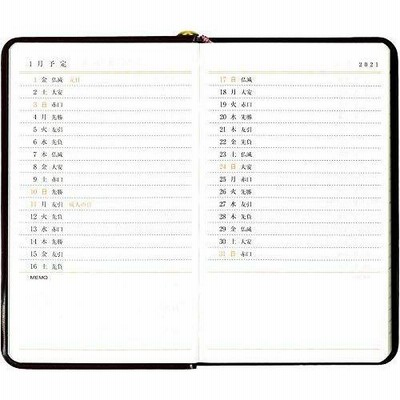 1月予定
1 金 仏滅 元日
2 土 大安
3 日 赤口
4 月 先勝
5 火 友引
6 水 先負
7 木 仏滅
8 金 大安
9 土 赤口
10 日 先勝
11 月 友引 成人の日
12 火 先負
13 水 赤口
14 木 先勝
15 金 友引
16 土 先負
MEMO
2021
17 日 仏滅
18 月 大安
19 火 赤口
20 水 先勝
21 木 友引
22 金 先負
23 土 仏滅
24 日 大安
25 月 赤口
26 火 先勝
27 水 友引
28 木 先負
29 金 仏滅
30 土 大安
31 日 赤口